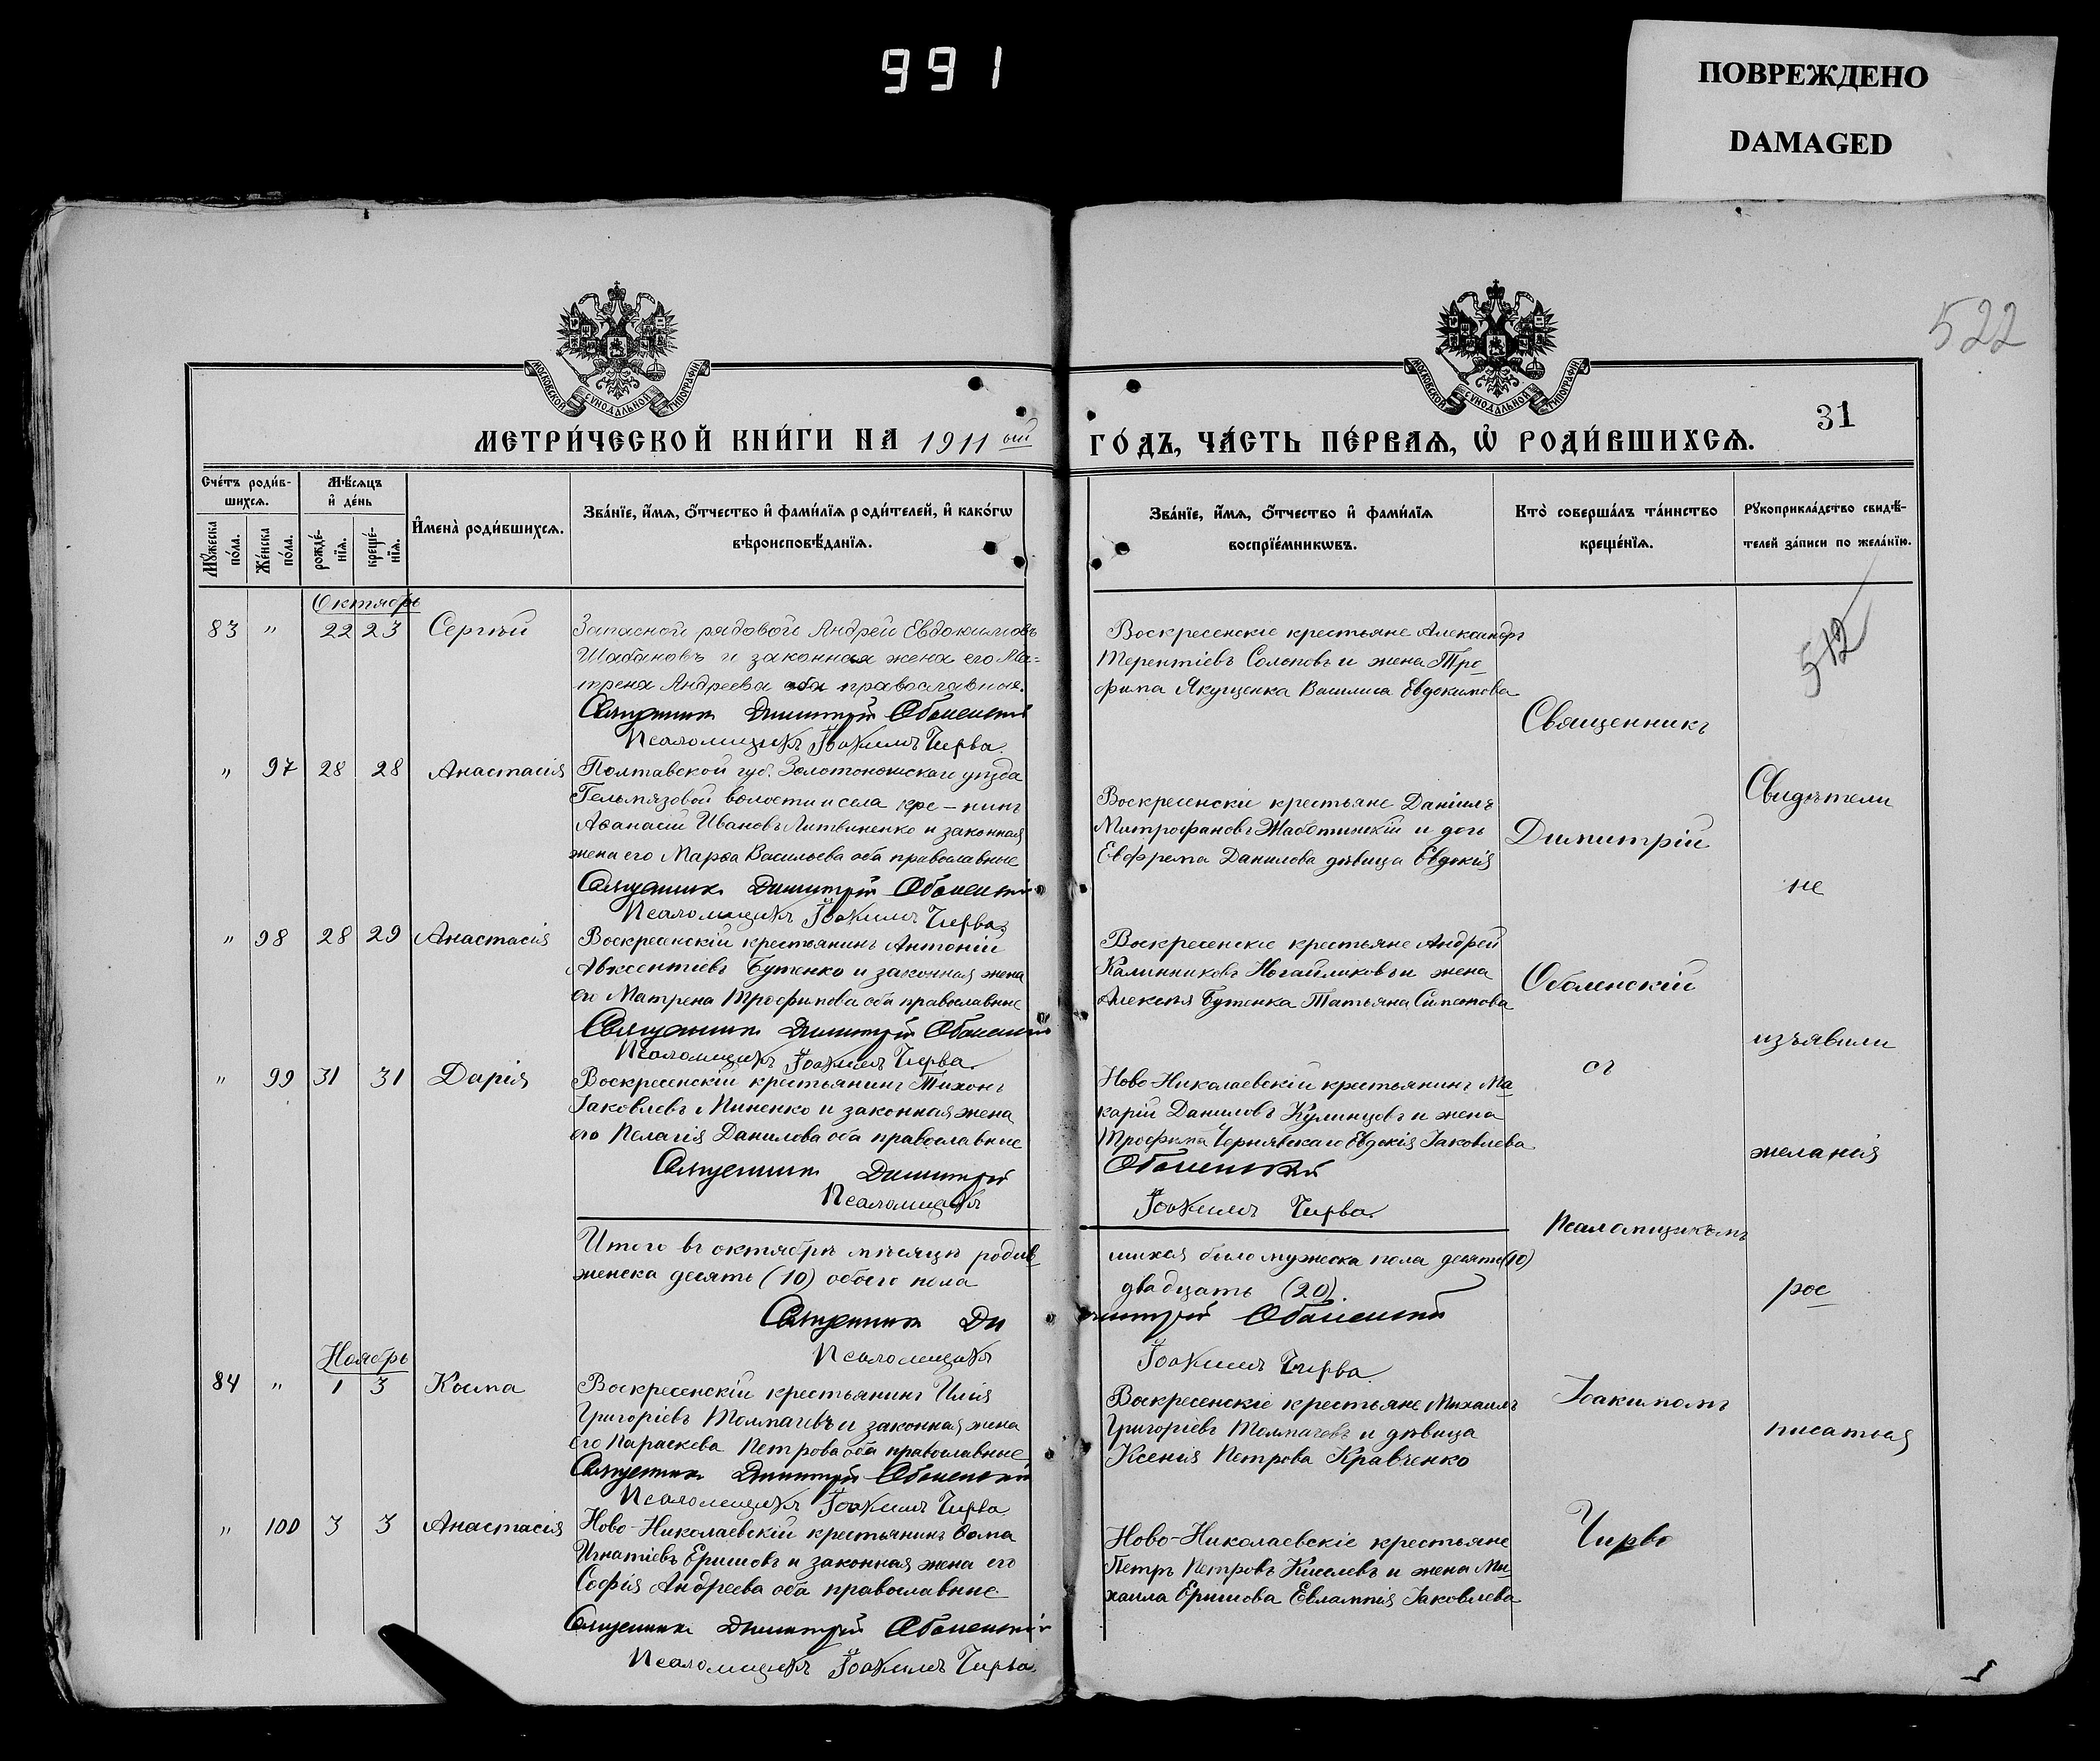 991
ПОВРЕЖДЕНО
DAMAGED
522
МОСКОВСКОЙ СѴНОДАЛЬНОЙ ТИПОГРАФІИ
МОСКОВСКОЙ СѴНОДАЛЬНОЙ ТИПОГРАФІИ
31
МЕТРИ́ЧЕСКОЙ КНИ́ГИ НА 1911 ый ГО́ДЪ, ЧА́СТЬ ПЕ́РВАѦ, Ѡ҆ РОДИ́ВШИХСѦ.
Сче́тъ роди́в-
шихсѧ.
Мꙋжеска по́ла.
Же́нска по́ла.
Мѣ́сѧцъ
и҆ де́нь
рожде́-
нїѧ.
креще́-
нїѧ.
И҆мена̀ роди́вшихсѧ.
Зва́нїе, и҆́мѧ, ѻ҆́тчество и҆ фами́лїѧ роди́телей, и҆ како́гѡ
вѣроисповѣ́данїѧ.
Зва́нїе, и҆́мѧ, ѻ҆́тчество и҆ фами́лїѧ
воспрїе́мникѡвъ.
Кто̀ соверша́лъ та́инство
креще́нїѧ.
Рꙋкоприкла́дство свидѣ́-
телей за́писи по жела́нїю.
Октябрь
83 " 22 23 Сергѣй
Запасной рядовой Андрей Евдокимовъ
Шабановъ и законная жена его Ма-
трена Андреева оба православные.
Священникъ Димитрій Оболенскій
Псаломщикъ Іоакимъ Чирва.
Воскресенскіе крестьяне Александръ
Терентіевъ Солоповъ и жена Тро-
фима Якущенка Василиса Евдокимова
512
" 97 28 28 Анастасія
Полтавской губ. Золотоношскаго уѣзда
Гельмязовой волости и села кре-нинъ
Аѳанасій Ивановъ Литвиненко и законная
жена его Марѳа Васильева оба православные
Священникъ Димитрій Оболенскій
Псаломщикъ Іоакимъ Чирва.
Воскресенскіе крестьяне Даніилъ
Митрофановъ Жаботинскій и дочь
Евфрема Данилова дѣвица Евдокія
" 98 28 29 Анастасія
Воскресенскій крестьянинъ Антоній
Авксентіевъ Бутенко и законная жена
его Матрена Трофимова оба православные
Священникъ Димитрій Оболенскій
Псаломщикъ Іоакимъ Чирва.
Воскресенскіе крестьяне Андрей
Калинниковъ Ногайликовъ и жена
Алексѣя Бутенка Татьяна Симонова
" 99 31 31 Дарія
Воскресенскій крестьянинъ Тихонъ
Іаковлевъ Миненко и законная жена
его Пелагія Данилова оба православные
Священникъ Димитрій Оболенскій
Псаломщикъ Іоакимъ Чирва.
Ново-Николаевскій крестьянинъ Ма-
карій Даниловъ Кулинцовъ и жена
Трофима Чернявскаго Евдокія Іаковлева
Итого въ октябрѣ мѣсяцѣ родив-шихся было мужеска пола десять (10)
женска десять (10) обоего пола двадцать (20).
Священникъ Димитрій Оболенскій
Псаломщикъ Іоакимъ Чирва.
Ноябрь
84 " 1 3 Косма
Воскресенскій крестьянинъ Илія
Григоріевъ Толмачевъ и законная жена
его Параскева Петрова оба православные
Священникъ Димитрій Оболенскій
Псаломщикъ Іоакимъ Чирва
Воскресенскіе крестьяне Михаилъ
Григоріевъ Толмачевъ и дѣвица
Ксенія Петрова Кравченко
" 100 3 3 Анастасія
Ново-Николаевскій крестьянинъ Ѳома
Игнатіевъ Ершовъ и законная жена его
Софія Андреева оба православные
Священникъ Димитрій Оболенскій
Псаломщикъ Іоакимъ Чирва.
Ново-Николаевскіе крестьяне
Петръ Петровъ Киселевъ и жена Ми-
хаила Ершова Евлампія Іаковлева
Священникъ
Димитрій
Оболенскій
съ
псаломщикомъ
Іоакимомъ
Чирво
Свидѣтели
не
изъявили
желанія
рос
писаться